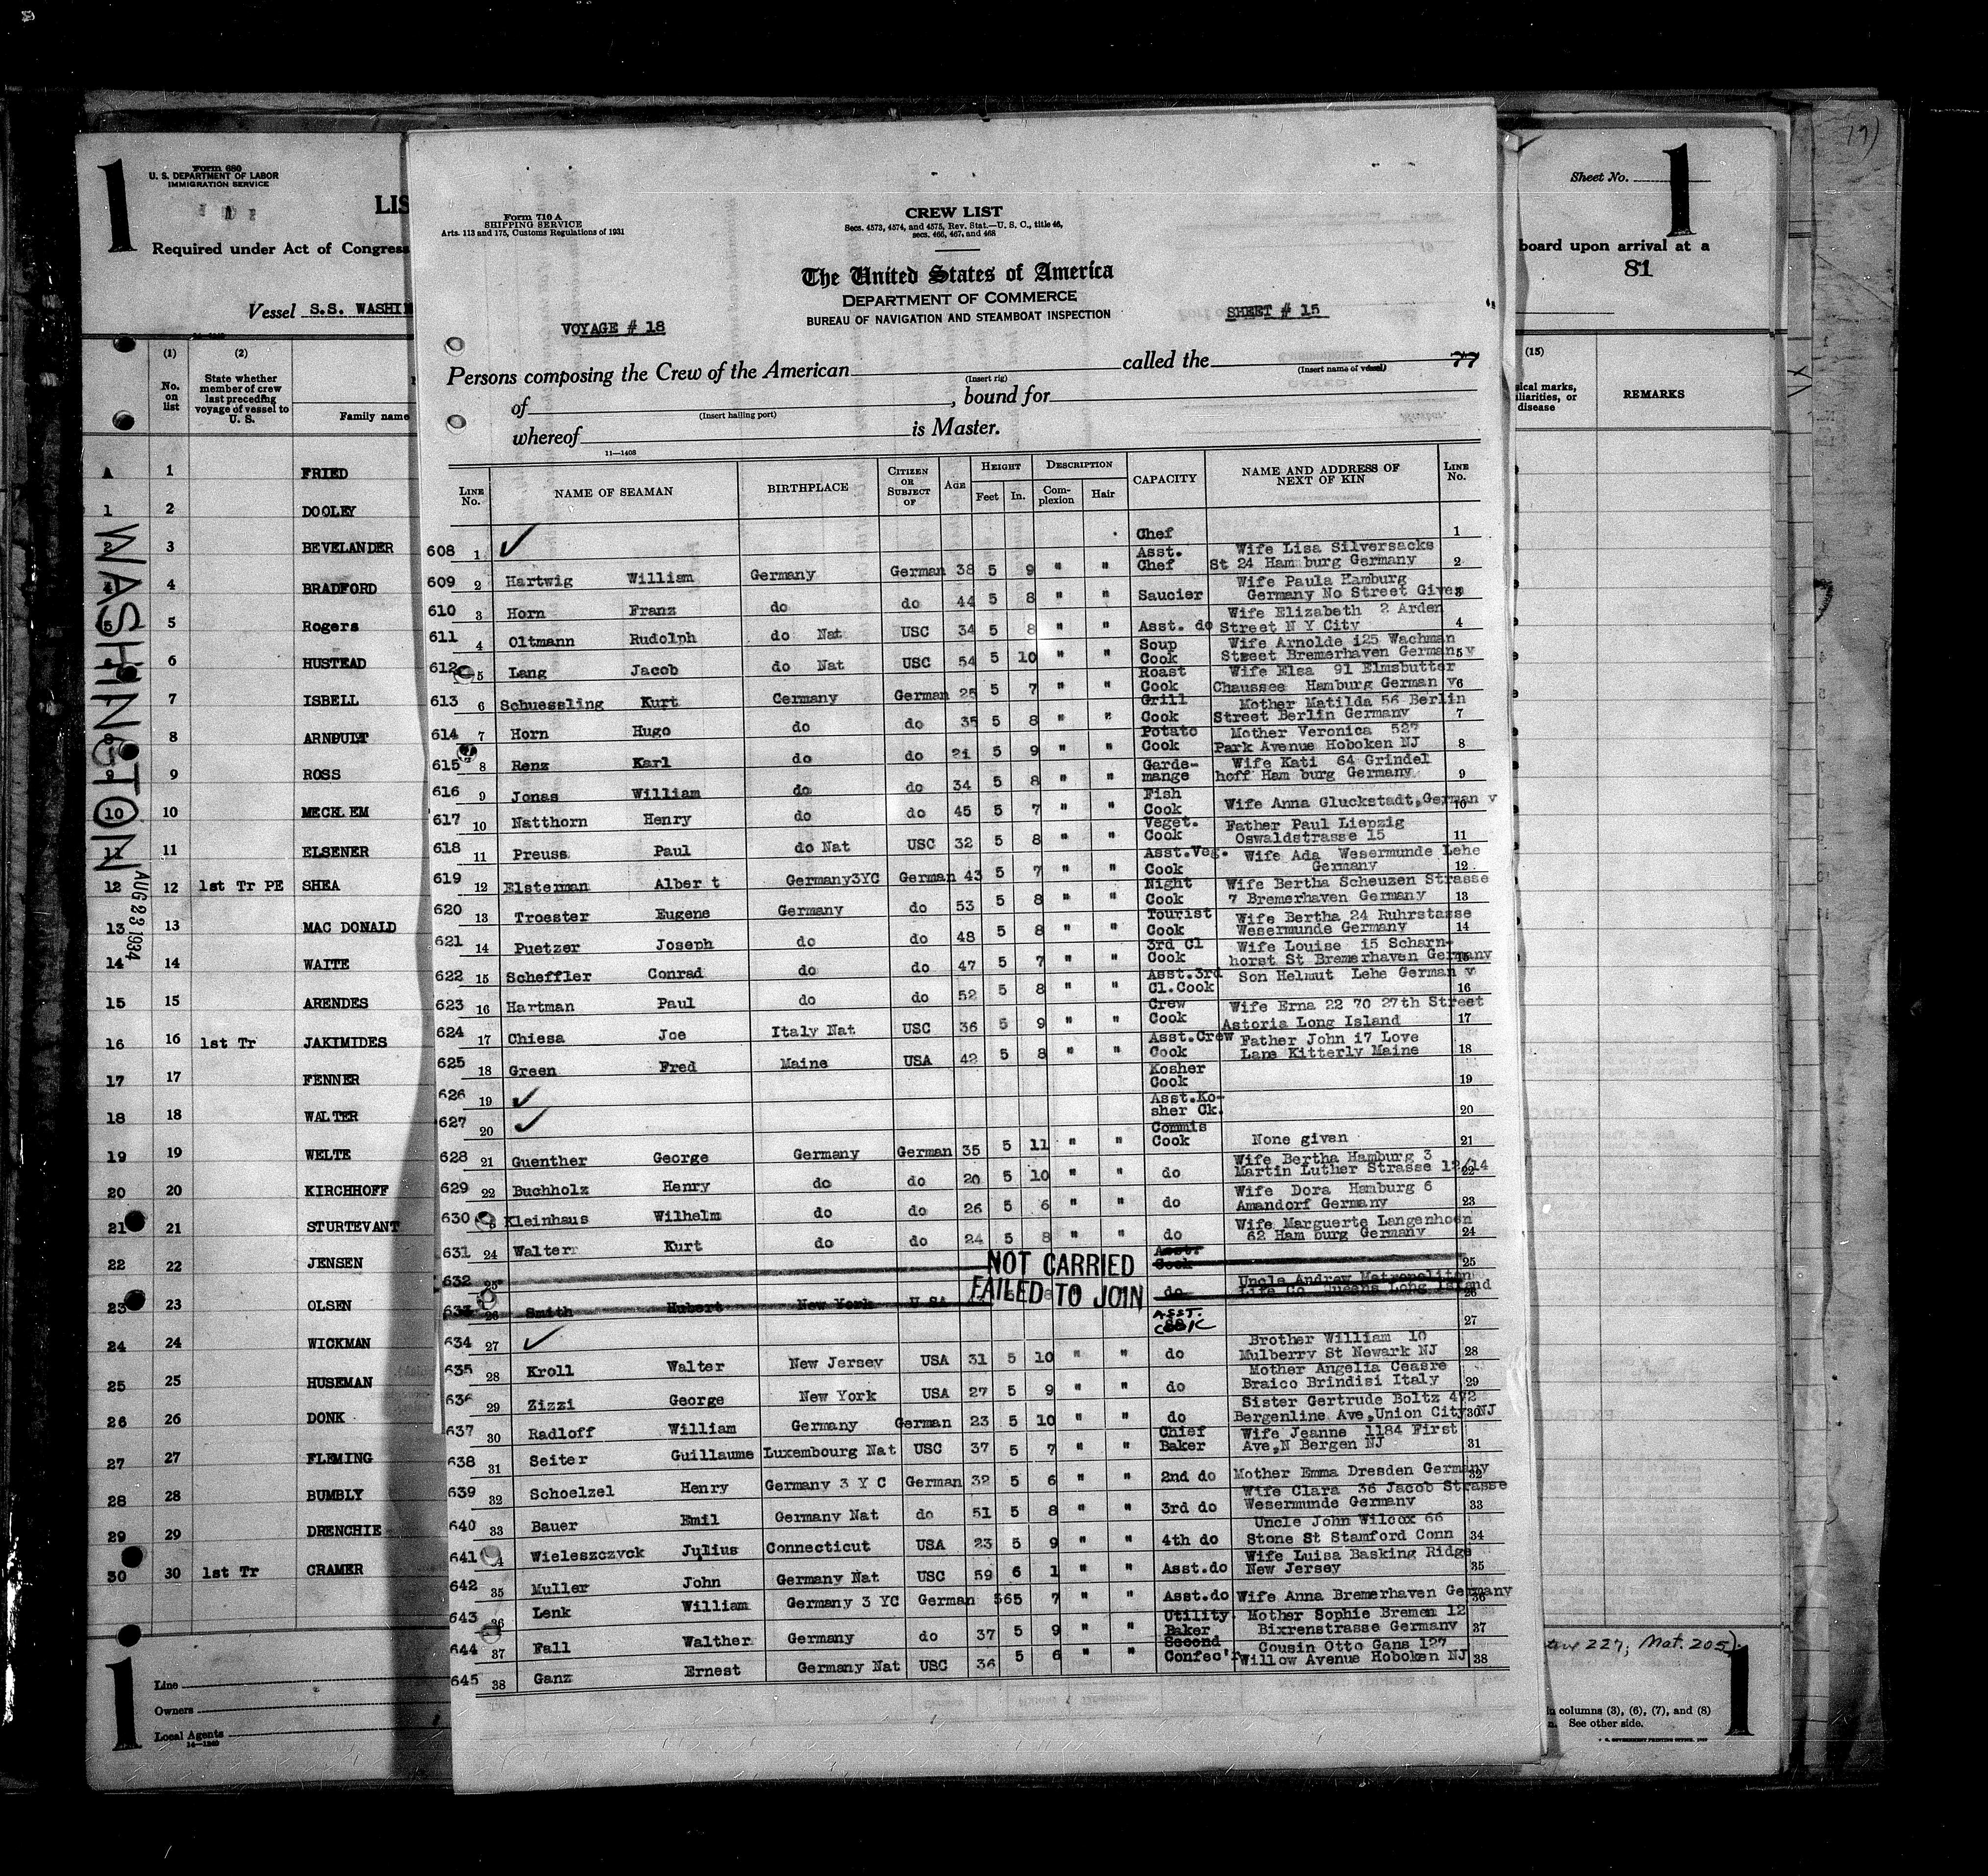 1
Form 680
U. S. DEPARTMENT OF LABOR
IMMIGRATION SERVICE
LIS
Required under Act of Congress
Vessel S.S. WASHIN
(1) (2)
No. on list
State whether member of crew last preceding voyage of vessel to U. S.
Family name
1 FRIED
1 2 DOOLEY
2 3 BEVELANDER
4 4 BRADFORD
5 5 Rogers
6 HUSTEAD
7 ISBELL
8 ARNDULT
9 ROSS
10 10 MECKLEM
11 11 ELSENER
12 12 1st Tr PE SHEA
13 13 MAC DONALD
14 14 WAITE
15 15 ARENDES
16 16 1st Tr JAKIMIDES
17 17 FENNER
18 18 WALTER
19 19 WELTE
20 20 KIRCHHOFF
21 21 STURTEVANT
22 22 JENSEN
23 23 OLSEN
24 24 WICKMAN
25 25 HUSEMAN
26 26 DONK
27 27 FLEMING
28 28 BUMBLY
29 29 DRENCHIE
30 30 1st Tr CRAMER
WASHINGTON
AUG 23 1934
Line
Owners
Local Agents
14—1240
1
Form 710 A
SHIPPING SERVICE
Arts. 113 and 175, Customs Regulations of 1931
CREW LIST
Secs. 4573, 4574, and 4575, Rev. Stat.—U. S. C., title 46,
secs. 466, 467, and 468
The United States of America
DEPARTMENT OF COMMERCE
BUREAU OF NAVIGATION AND STEAMBOAT INSPECTION
VOYAGE # 18
SHEET # 15
77
Persons composing the Crew of the American called the
(Insert rig) (Insert name of vessel)
of , bound for
(Insert hailing port)
whereof is Master.
11—1408
LINE No. NAME OF SEAMAN BIRTHPLACE CITIZEN OR SUBJECT OF AGE HEIGHT DESCRIPTION CAPACITY NAME AND ADDRESS OF NEXT OF KIN LINE No.
Feet In. Complexion Hair
608 1 ✓ Chef 1
609 2 Hartwig William Germany German 38 5 9 " " Asst. Chef Wife Lisa Silversacks St 24 Ham burg Germany 2
610 3 Horn Franz do do 44 5 8 " " Saucier Wife Paula Hamburg Germany No Street Given 3
611 4 Oltmann Rudolph do Nat USC 34 5 8 " " Asst. do Wife Elizabeth 2 Arden Street N Y City 4
612 5 Lang Jacob do Nat USC 54 5 10 " " Soup Cook Wife Arnolde 125 Wachman Street Bremerhaven Germany 5
613 6 Schuessling Kurt Germany German 25 5 7 " " Roast Cook Wife Elsa 91 Elmsbutter Chaussee Hamburg German y 6
614 7 Horn Hugo do do 35 5 8 " " Grill Cook Mother Matilda 56 Berlin Street Berlin Germany 7
615 8 Renz Karl do do 21 5 9 " " Potato Cook Mother Veronica 527 Park Avenue Hoboken NJ 8
616 9 Jonas William do do 34 5 8 " " Garde-mange Wife Kati 64 Grindel hoff Ham burg Germany 9
617 10 Natthorn Henry do do 45 5 7 " " Fish Cook Wife Anna Gluckstadt,German y 10
618 11 Preuss Paul do Nat USC 32 5 8 " " Veget. Cook Father Paul Liepzig Oswaldstrasse 15 11
619 12 Elsterman Alber t Germany3YC German 43 5 7 " " Asst.Veg. Cook Wife Ada Wesermunde Lehe Germany 12
620 13 Troester Eugene Germany do 53 5 8 " " Night Cook Wife Bertha Scheuzen Strasse 7 Bremerhaven Germany 13
621 14 Puetzer Joseph do do 48 5 8 " " Tourist Cook Wife Bertha 24 Ruhrstasse Wesermunde Germany 14
622 15 Scheffler Conrad do do 47 5 7 " " 3rd Cl Cook Wife Louise 15 Scharn-horst St Bremerhaven Germany 15
623 16 Hartman Paul do do 52 5 8 " " Asst.3rd Cl.Cook Son Helmut Lehe German y 16
624 17 Chiesa Joe Italy Nat USC 36 5 9 " " Crew Cook Wife Erna 22 70 27th Street Astoria Long Island 17
625 18 Green Fred Maine USA 42 5 8 " " Asst.Crew Cook Father John 17 Love Lane Kitterly Maine 18
626 19 ✓ Kosher Cook 19
627 20 ✓ Asst.Ko-sher Ck. 20
628 21 Guenther George Germany German 35 5 11 " " Commis Cook None given 21
629 22 Buchholz Henry do do 20 5 10 " " do Wife Bertha Hamburg 3 Martin Luther Strasse 12/14 22
630 Kleinhaus Wilhelm do do 26 5 6 " " do Wife Dora Hamburg 6 Amandorf Germany 23
631 24 Walterr Kurt do do 24 5 8 " " do Wife Marguerte Langenhoen 62 Ham burg Germany 24
632 25 Asst. Cook 25
633 26 Smith Hubert New York USA do Uncle Andrew Metropolitan Life Co Queens Long Island 26
NOT CARRIED
FAILED TO JOIN
634 27 ✓ ASST. COOK 27
635 28 Kroll Walter New Jersey USA 31 5 10 " " do Brother William 10 Mulberry St Newark NJ 28
636 29 Zizzi George New York USA 27 5 9 " " do Mother Angelia Ceasre Braico Brindisi Italy 29
637 30 Radloff William Germany German 23 5 10 " " do Sister Gertrude Boltz 472 Bergenline Ave,Union City NJ 30
638 31 Seiter Guillaume Luxembourg Nat USC 37 5 7 " " Chief Baker Wife Jeanne 1184 First Ave,N Bergen NJ 31
639 32 Schoelzel Henry Germany 3 Y C German 32 5 6 " " 2nd do Mother Emma Dresden Germany 32
640 33 Bauer Emil Germany Nat do 51 5 8 " " 3rd do Wife Clara 36 Jacob Strasse Wesermunde Germany 33
641 Wieleszczyck Julius Connecticut USA 23 5 9 " " 4th do Uncle John Wilcox 66 Stone St Stamford Conn 34
642 35 Muller John Germany Nat USC 59 6 1 " " Asst.do Wife Luisa Basking Ridge New Jersey 35
643 36 Lenk William Germany 3 YC German 565 7 " " Asst.do Wife Anna Bremerhaven Germany 36
644 37 Fall Walther Germany do 37 5 9 " " Utility Baker Mother Sophie Bremen 12 Bixrenstrasse Germany 37
645 38 Ganz Ernest Germany Nat USC 36 5 6 " " Second Confec'r Cousin Otto Gans 127 Willow Avenue Hoboken NJ 38
Sheet No.
1
board upon arrival at a
81
(15)
sical marks,
iliarities, or
disease
REMARKS
227; Nat. 205)
columns (3), (6), (7), and (8)
See other side.
1